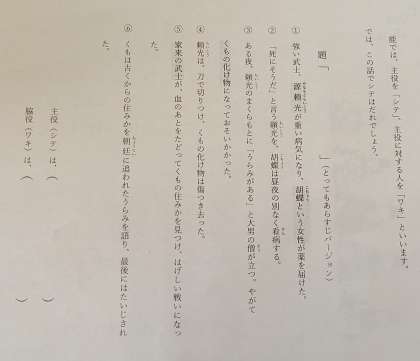 能では、主役を「シテ」、主役に対する人を「ワキ」といいます。
では、この話でシテはだれでしょう。
題「　　　　　　　　」（とってもあらすじバージョン）
① 強い武士、源頼光が重い病気になり、胡蝶という女性が薬を届けた。
② 「死にそうだ」と言う頼光を、胡蝶は昼夜の別なく看病する。
③ ある夜、頼光のまくらもとに「うらみがある」と大男の僧が立つ。やがて
くもの化け物になっておそいかかった。
④ 頼光は、刀で切りつけ、くもの化け物は傷つき去った。
⑤ 家来の武士が、血のあとをたどってくもの住みかを見つけ、はげしい戦いになっ
た。
⑥ くもは古くからの住みかを朝廷に追われたうらみを語り、最後にはたいじされ
た。
主役（シテ）は、（　　　　　　　　）
脇役（ワキ）は、（　　　　　　　　）